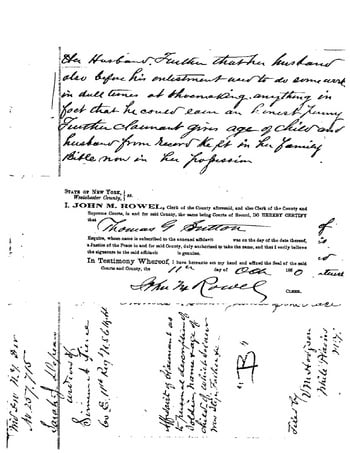 Her Husband. Further that her husband
also before his enlistment used to do some work
in dull times at shoemaking. anything in
fact that he could earn an honest penny
Further claimant gives age of child and
husband from record kept in her family
Bible now in her possession
STATE OF NEW YORK,
Westchester County, ss.
I, JOHN M. ROWEL, Clerk of the County aforesaid, and also Clerk of the County and
Supreme Courts, in and for said County, the same being Courts of Record, DO HEREBY CERTIFY
that Thomas G Sutton
Esquire, whose name is subscribed to the annexed affidavit was on the day of the date thereof,
a Justice of the Peace in and for said County, duly authorized to take the same, and that I verily believe
the signature to the said affidavit is genuine.
In Testimony Whereof, I have hereunto set my hand and affixed the Seal of the said
Courts and County, the 11th day of Oct 1880
John M Rowel
CLERK.
No. 257,715
Sarah J
widow of
Co E. 11th Reg
Affidavit of Claimant as
to personal description of
soldier name & age of
child
"B"
Filed by
White Plains
N.Y.